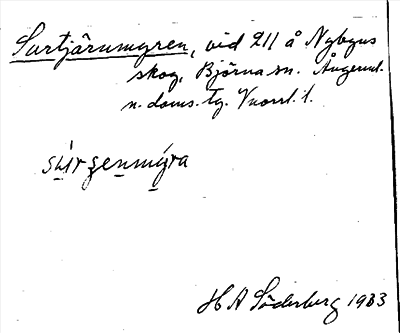 Surtjärnmyren, vid 211 å Nybyns
skog, Björna sn. Ångerml.
n. doms. tg. Vnorrl. l.
H A Söderberg 1933